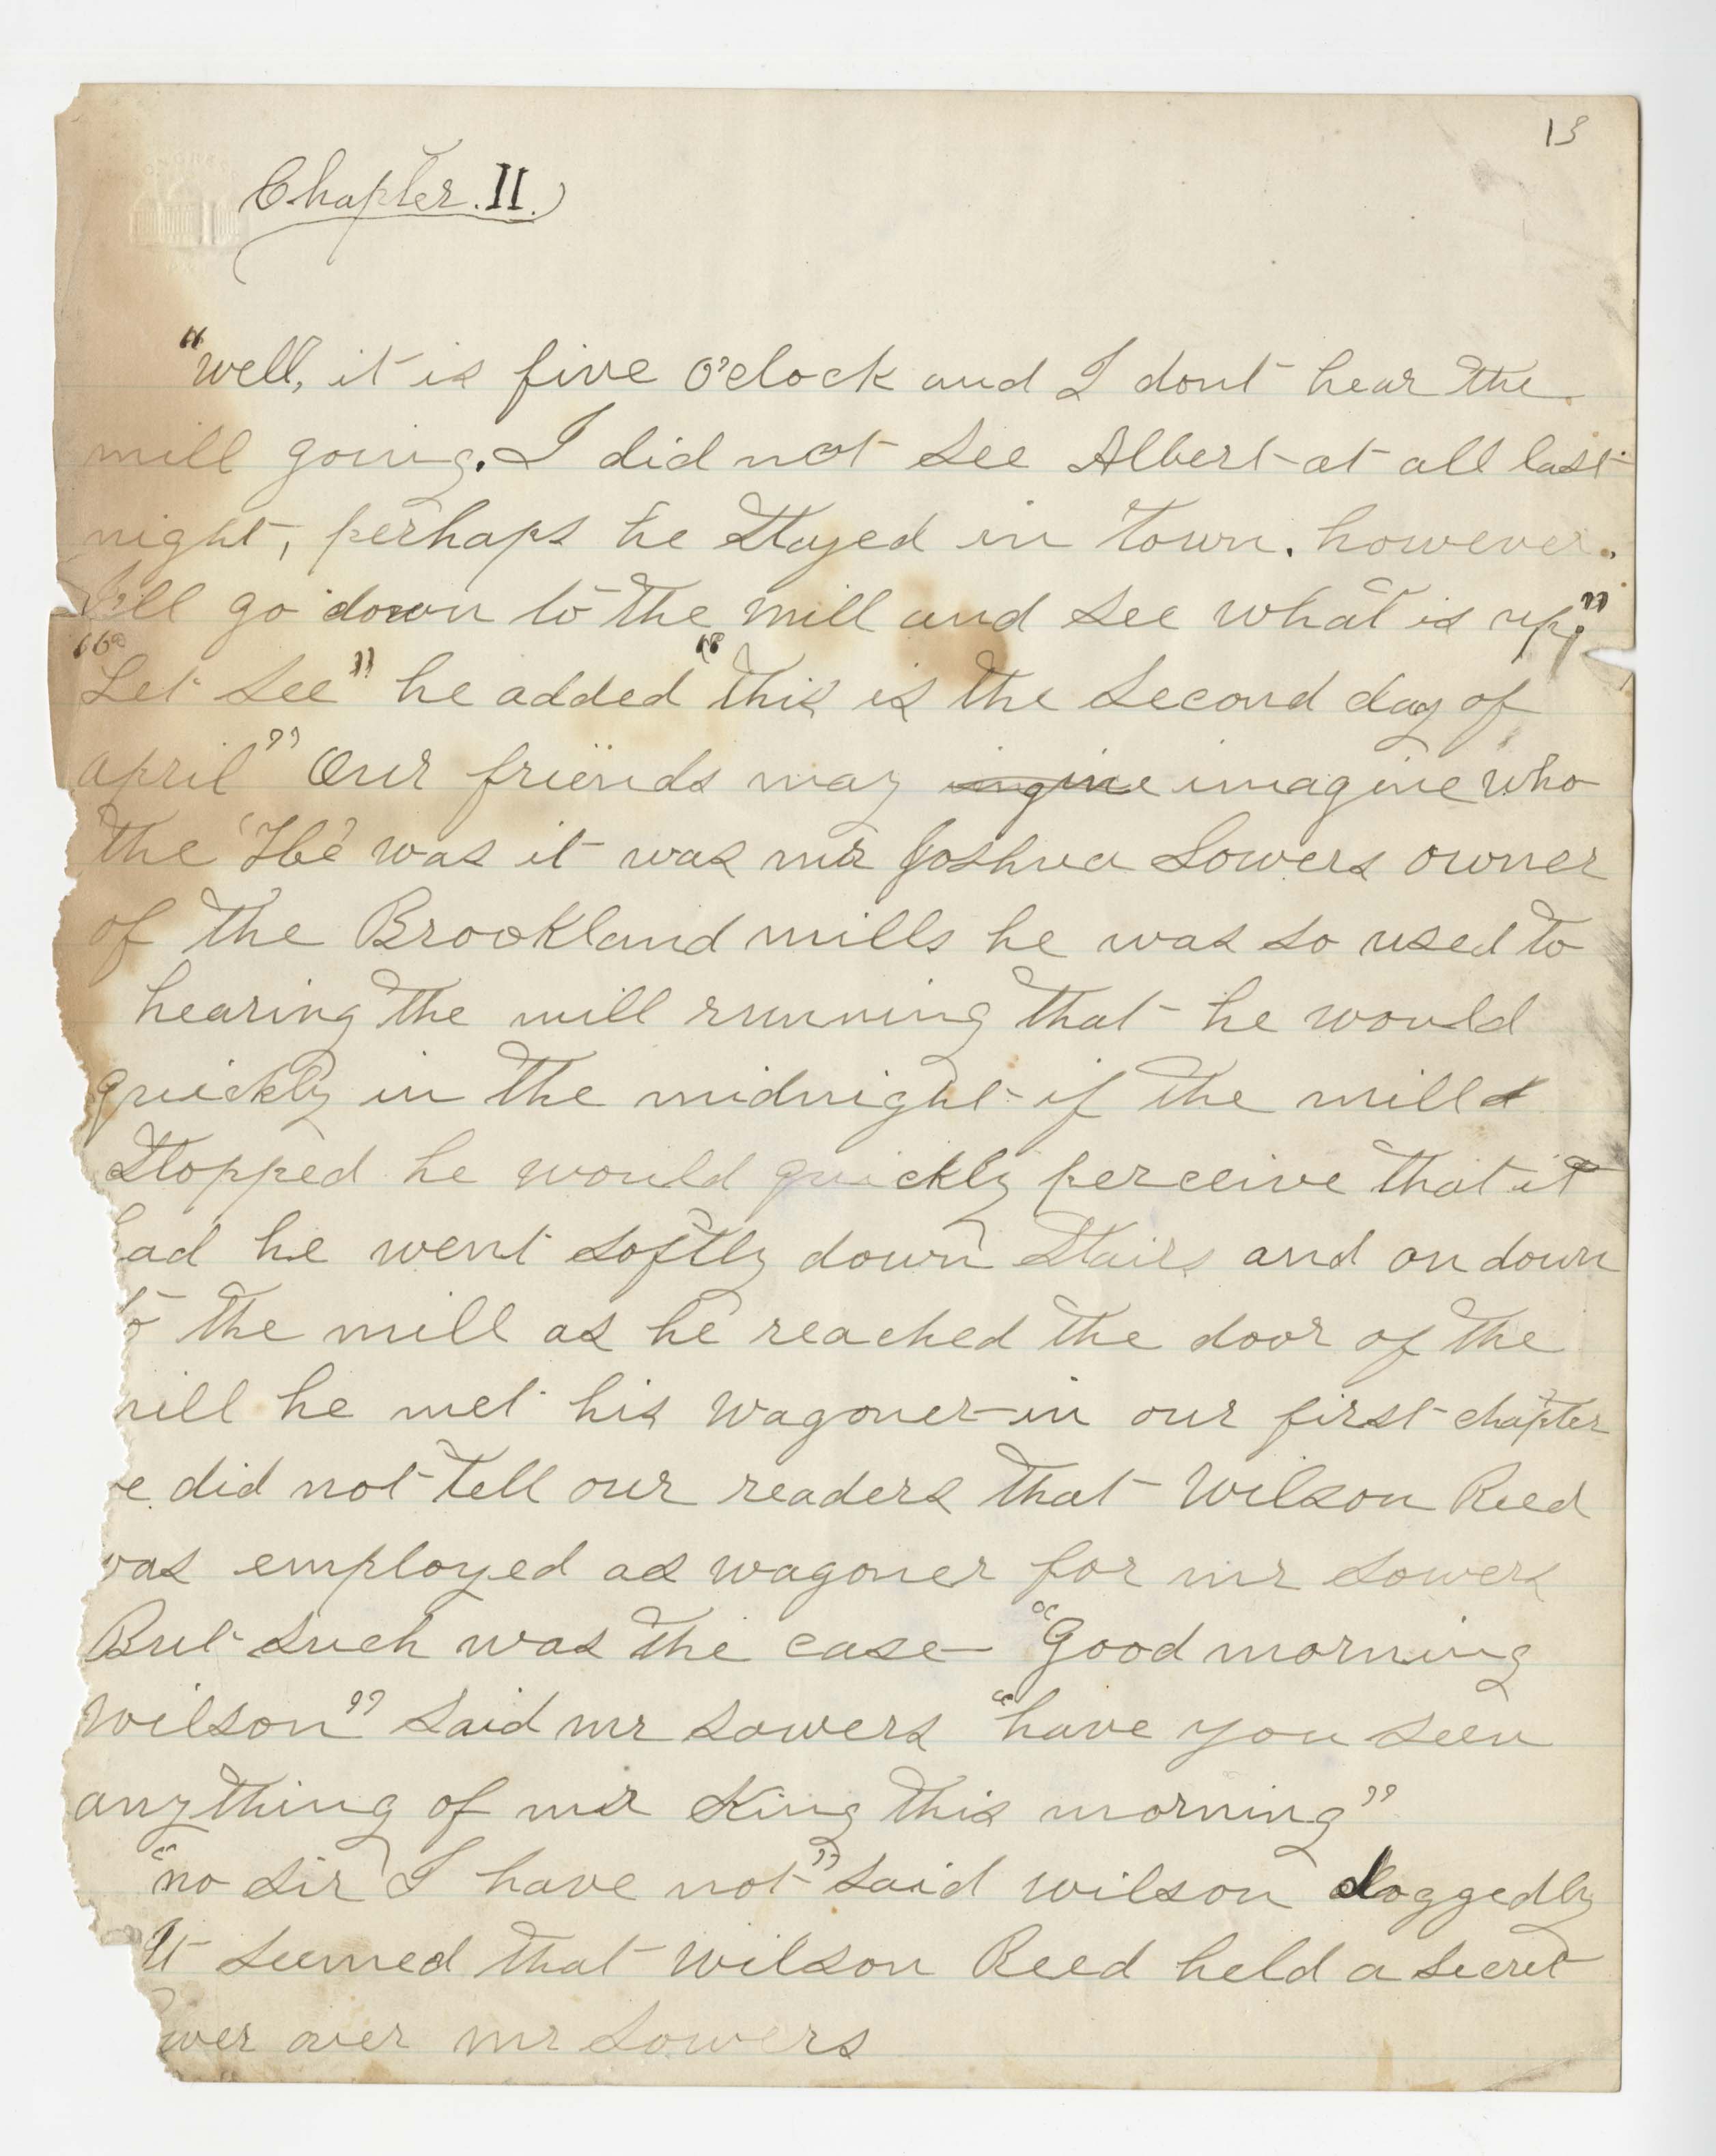 13
Chapter. II.
"well, it is five O'clock and I dont hear the
mill going. I did not see Albert at all last
night, perhaps he stayed in town. however.
I'll go down to the mill and see what is up."
"Let see" he added "this is the second day of
april" Our friends may imagine who
the 'He' was it was mr Joshua Sowers owner
of the Brookland mills he was so used to
hearing the mill running that he would
quickly in the midnight if the mill
stopped he would quickly perceive that it
had he went softly down stairs and on down
to the mill as he reached the door of the
mill he met his wagoner in our first chapter
e did not tell our readers that Wilson Reed
was employed as wagoner for mr Sowers
But such was the case "Good morning
Wilson" said mr sowers "have you seen
anything of mr King this morning"
"no sir I have not" said wilson doggedly
It seemed that wilson Reed held a secret
wer over mr Sowers